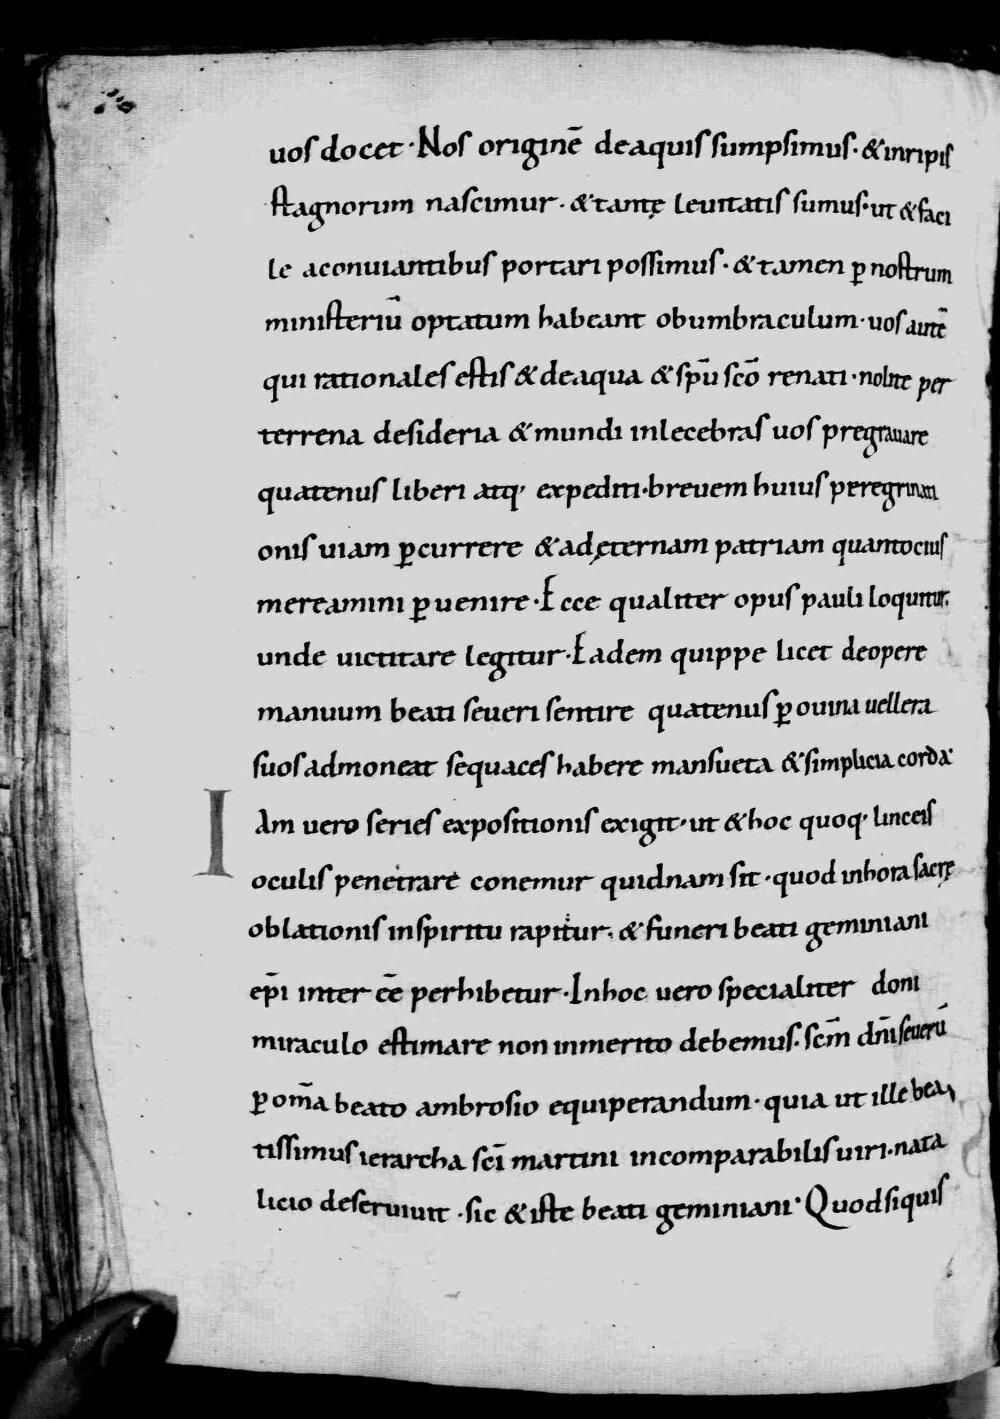 uos docet · Nos originē de aquis sumpsimus · & in ripis
stagnorum nascimur · & tantę leuitatis sumus · ut & faci
le a conuiantibus portari possimus · & tamen ꝑ nostrum
ministeriū optatum habeant obumbraculum · uos autē
qui rationales estis & de aqua & spū scō renati · nolite per
terrena desideria & mundi inlecebras uos pregrauare
quatenus liberi atq; expediti · breuem huius peregrinati
onis uiam ꝑcurrere & ad ęternam patriam quantocius
mereamini ꝑuenire · Ecce qualiter opus pauli loquitur,
unde uictitare legitur · Eadem quippe licet de opere
manuum beati seueri sentire quatenus ꝑ ouina uellera
suos admoneat sequaces habere mansueta & simplicia corda·
IAm uero series expositionis exigit · ut & hoc quoq; linceis
oculis penetrare conemur quidnam sit · quod in hora sacrę
oblationis in spiritu rapitur · & funeri beati geminiani
ep̄i inter eē perhibetur · In hoc uero specialiter doni
miraculo estimare non inmerito debemus · scm̄ dn̄i seuerū
ꝑ om̄a beato ambrosio equiperandum · quia ut ille bea
tissimus ierarcha scī martini incomparabilis uiri · nata
licio deseruiuit · sic & iste beati geminiani · Quod siquis